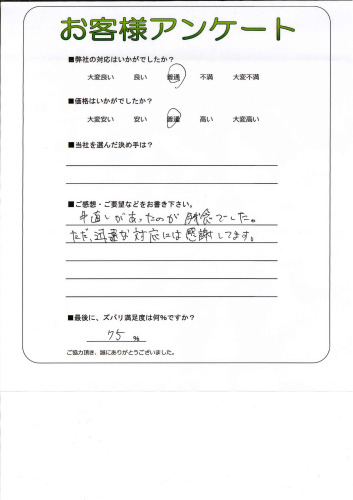 お客様アンケート
■弊社の対応はいかがでしたか？
大変良い 良い 普通 不満 大変不満
■価格はいかがでしたか？
大変安い 安い 普通 高い 大変高い
■当社を選んだ決め手は？
■ご感想・ご要望などをお書き下さい。
手直しがあったのが残念でした。
ただ、迅速な対応には感謝してます。
■最後に、ズバリ満足度は何％ですか？
75 %
ご協力頂き、誠にありがとうございました。